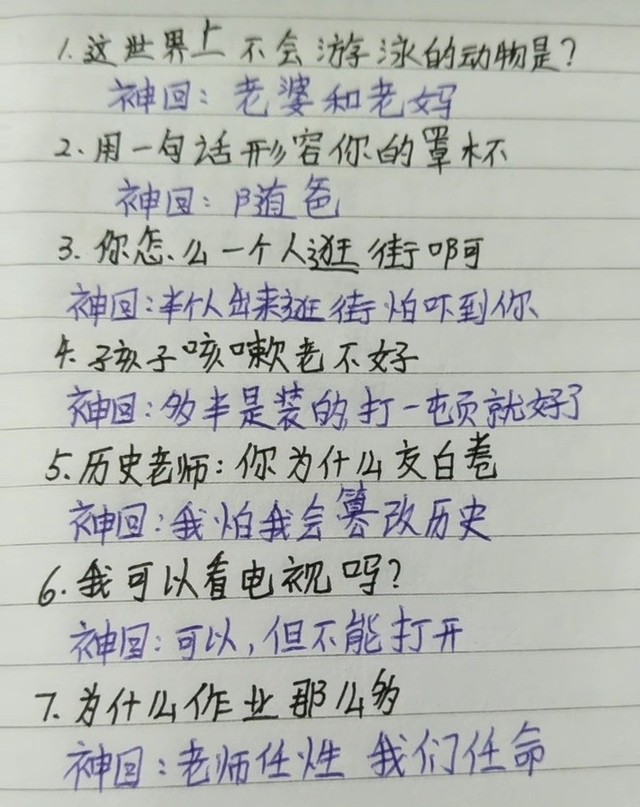 1.这世界上不会游泳的动物是?
神回:老婆和老妈
2.用一句话形容你的罩杯
神回:随爸
3.你怎么一个人逛街啊
神回:半个人出来逛街怕吓到你
4.孩子咳嗽老不好
神回:多半是装的,打一顿就好了
5.历史老师:你为什么交白卷
神回:我怕我会篡改历史
6.我可以看电视吗?
神回:可以,但不能打开
7.为什么作业那么多
神回:老师任性 我们任命